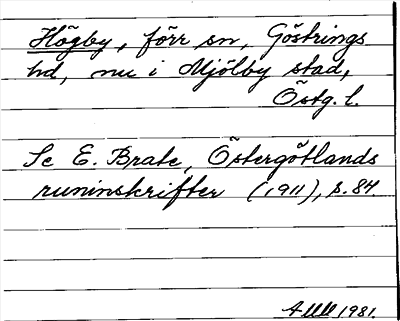 Högby, förr sn, Göstrings
hd, nu i Mjölby stad,
Östg. l.
Se E. Brate, Östergötlands
runinskrifter (1911), s. 84
1981.